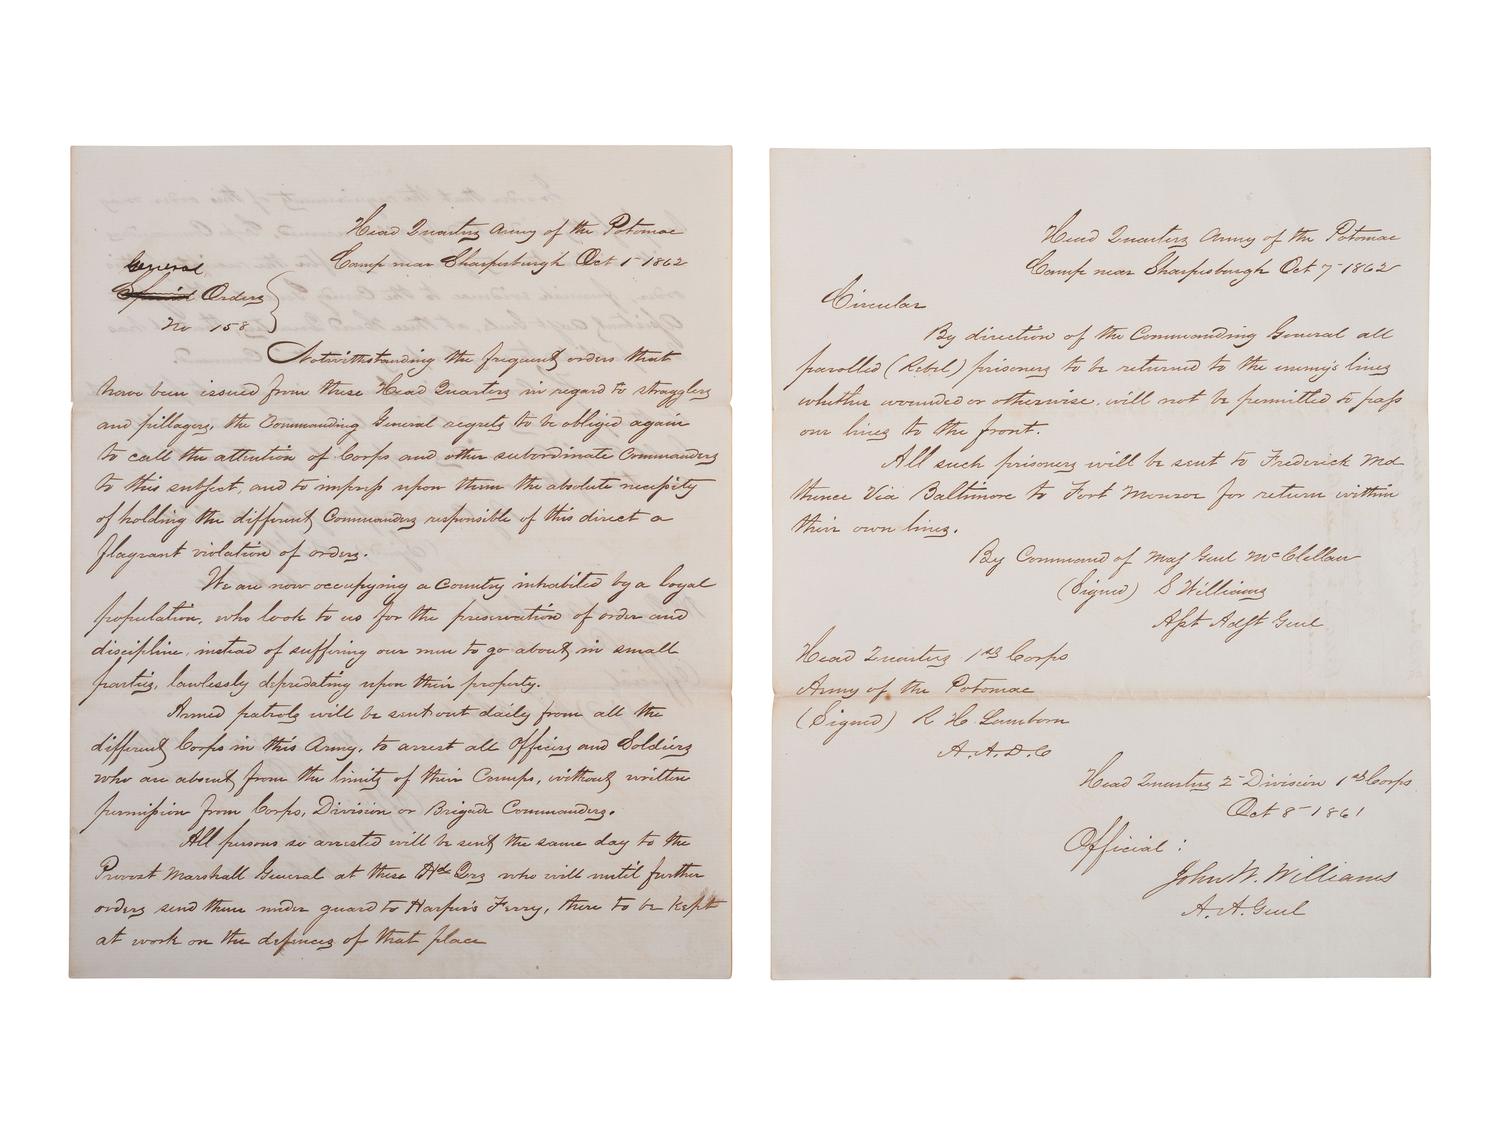 Head Quarters Army of the Potomac
Camp near Sharpsburgh Oct 1 - 1862
General
Special Orders
No 158
Notwithstanding the frequent orders that
have been issued from these Head Quarters in regard to stragglers
and pillagers, the Commanding General regrets to be obliged again
to call the attention of Corps and other subordinate Commanders
to this subject, and to impress upon them the absolute necessity
of holding the different Commanders responsible of this direct a
flagrant violation of orders.
We are now occupying a Country inhabited by a loyal
population, who look to us for the preservation of order and
discipline, instead of suffering our men to go about in small
parties, lawlessly depredating upon their property.
Armed patrols will be sent out daily from all the
different Corps in this Army, to arrest all Officers and Soldiers
who are absent from the limits of their Camps, without written
permission from Corps, Division or Brigade Commanders.
All persons so arrested will be sent the same day to the
Provost Marshall General at these Hd Qrs who will until further
orders send them under guard to Harper's Ferry, there to be kept
at work on the defences of that place
Head Quarters Army of the Potomac
Camp near Sharpesburgh Oct 7 - 1862
Circular
By direction of the Commanding General all
parolled (Rebel) prisoners to be returned to the enemy's lines
whether wounded or otherwise, will not be permitted to pass
our lines to the front.
All such prisoners will be sent to Frederick Md
thence Via Baltimore to Fort Monroe for return within
their own lines.
By Command of Maj Genl McClellan
(Signed) S Williams
Asst Adjt Genl
Head Quarters 1st Corps
Army of the Potomac
(Signed) R H Lamborn
A.A.D.C
Head Quarters 2- Division 1st Corps
Oct 8 - 1861
Official :
John W. Williams
A. A. Genl